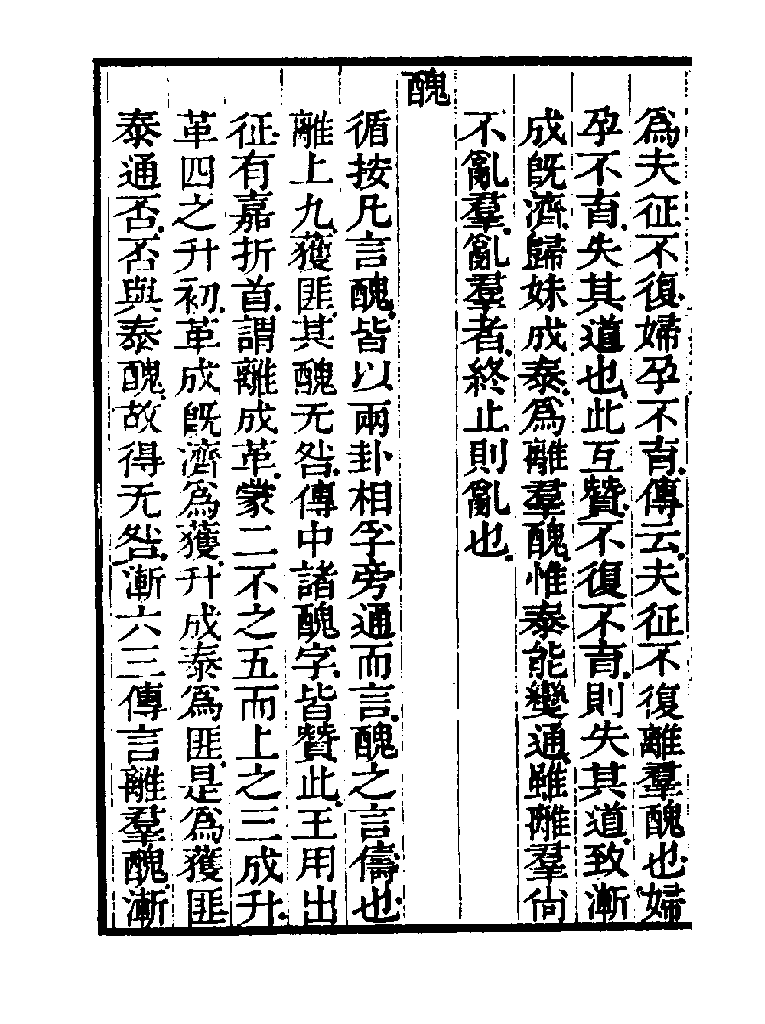 爲夫征不復婦孕不育傳云夫征不復離羣醜也婦
孕不育失其道也此互贊不復不育則失其道致漸
成旣濟歸妹成泰爲離羣醜惟泰能變通雖離羣尙
不亂羣亂羣者終止則亂也
醜
循按凡言醜皆以兩卦相孚旁通而言醜之言儔也
離上九獲匪其醜无咎傳中諸醜字皆贊此王用出
征有嘉折首謂離成革蒙二不之五而上之三成升
革四之升初革成旣濟爲獲升成泰爲匪是爲獲匪
泰通否否與泰醜故得无咎漸六三傳言離羣醜漸